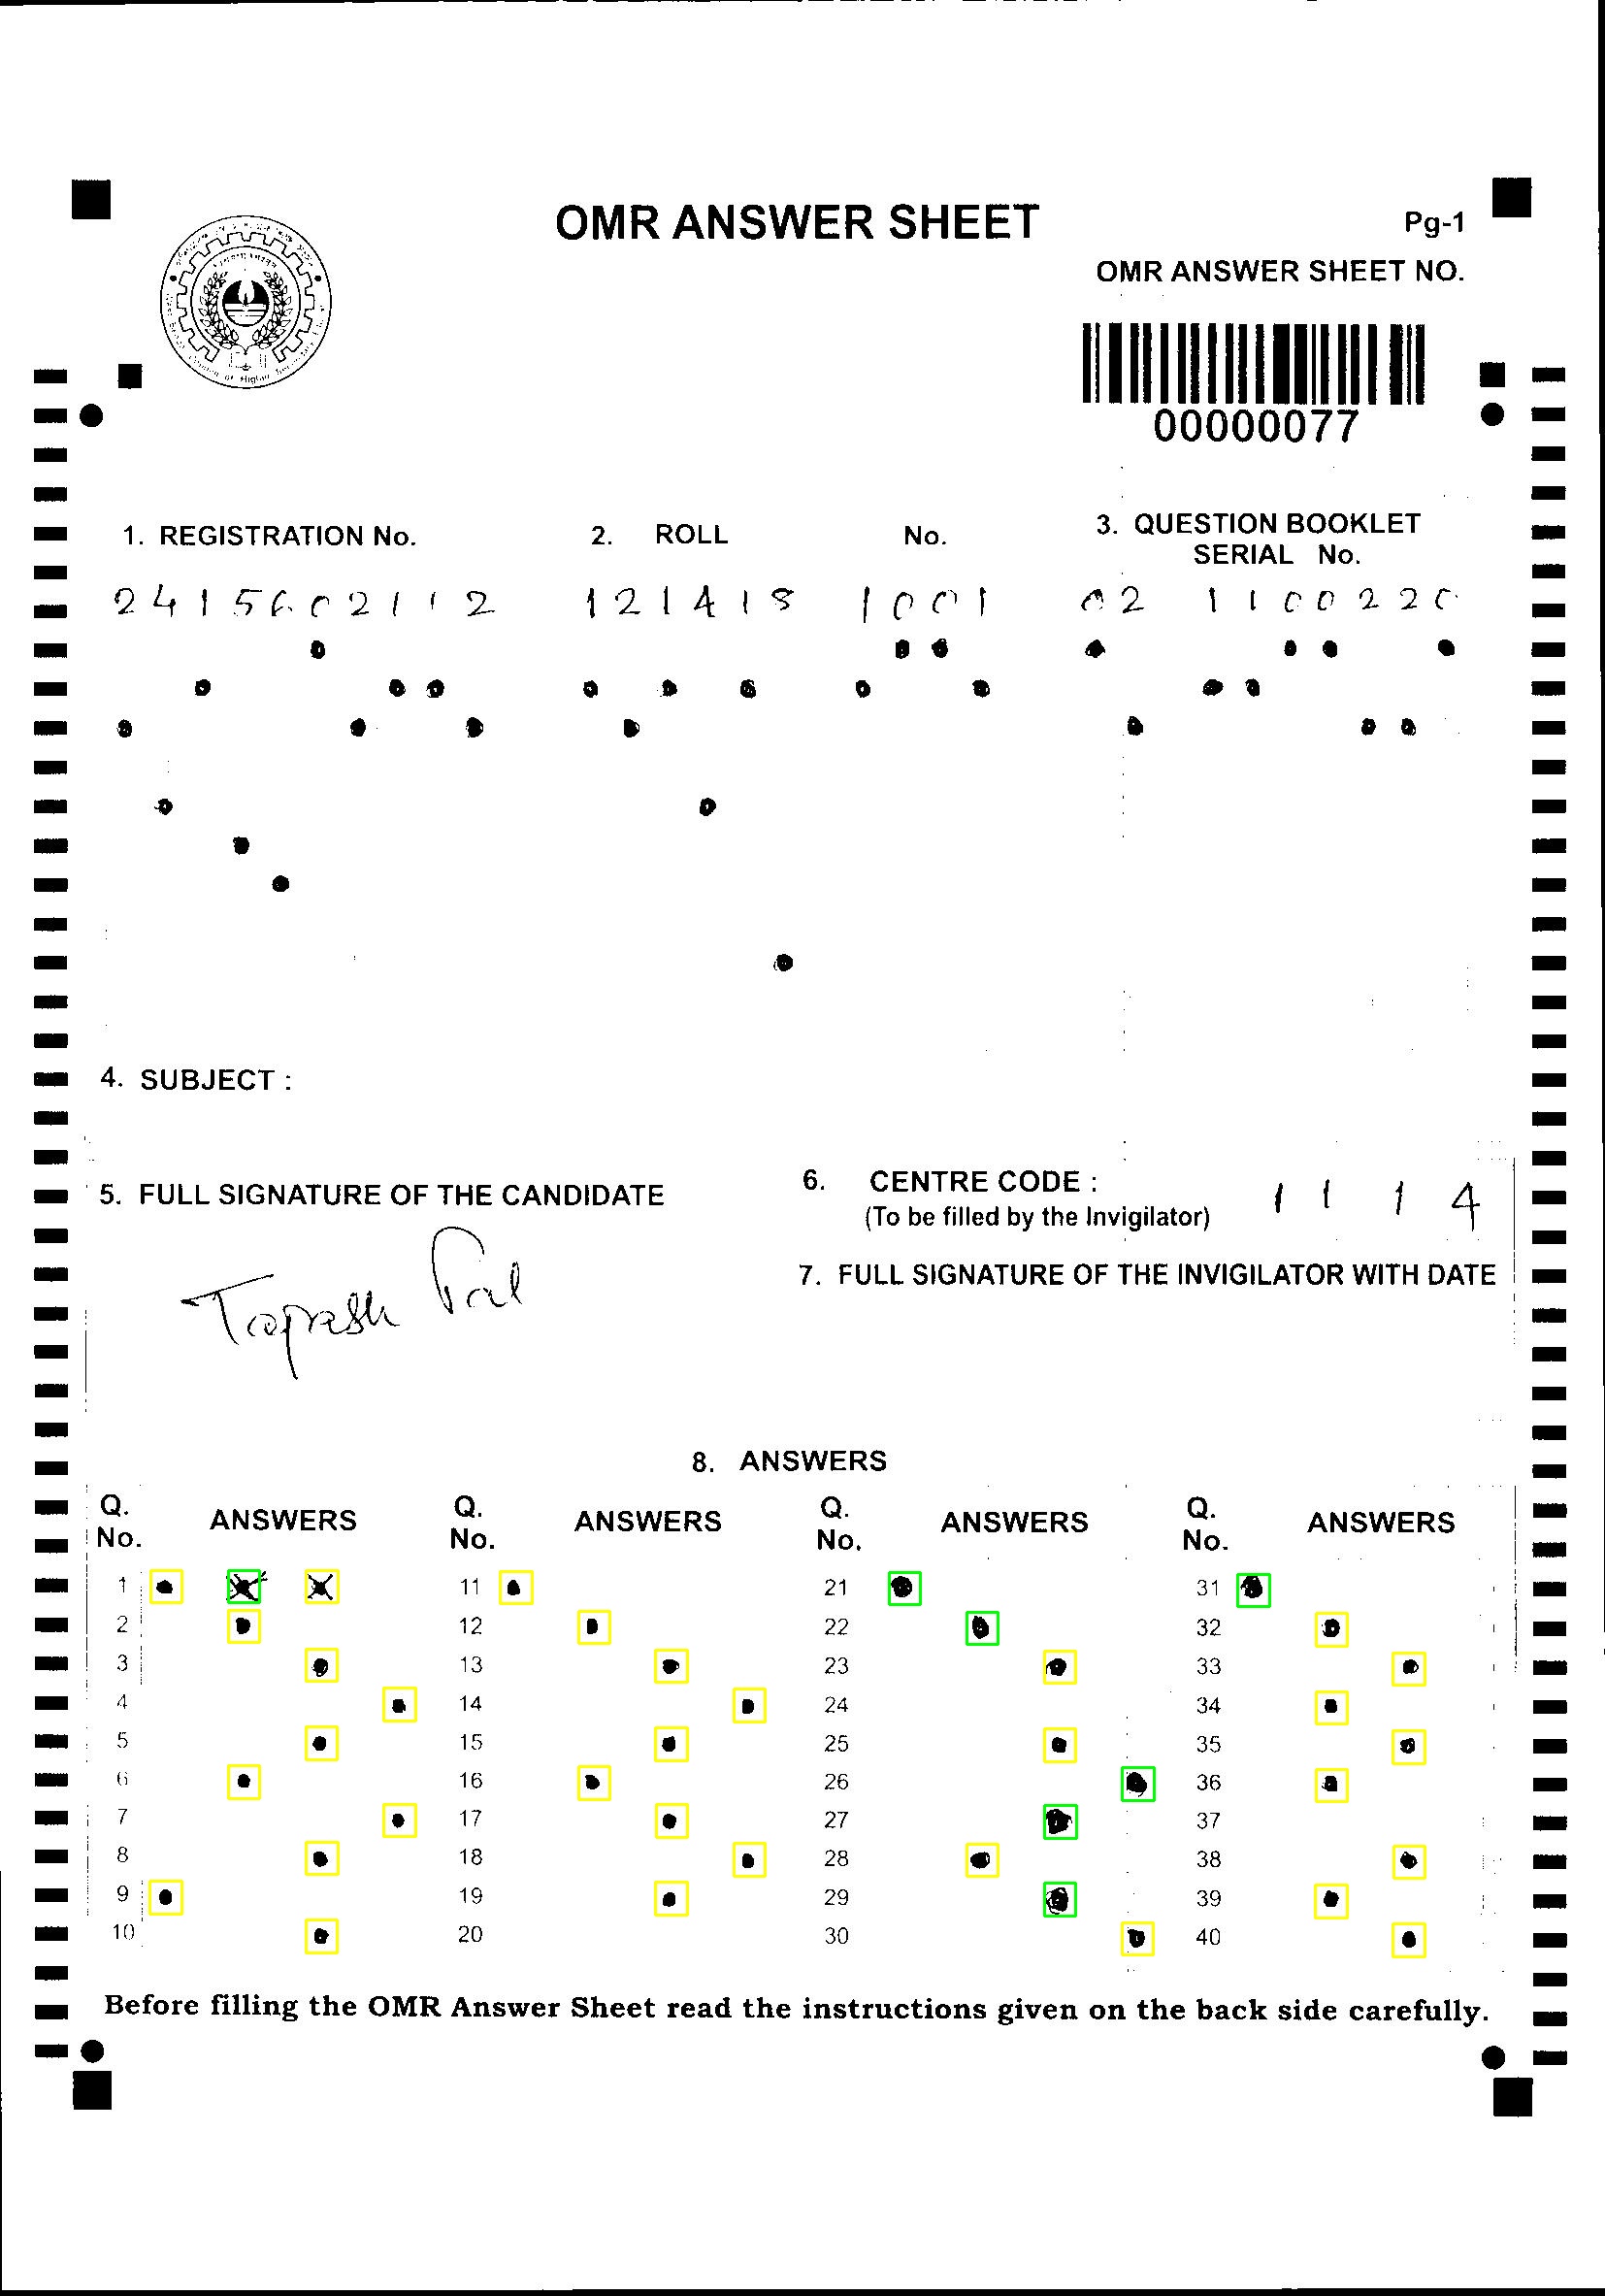 OMR ANSWER SHEET
Pg-1
OMR ANSWER SHEET NO.
00000077
1. REGISTRATION No.
2. ROLL No.
3. QUESTION BOOKLET
SERIAL No.
24156021 12
121418 1001
02 1100220
4. SUBJECT :
5. FULL SIGNATURE OF THE CANDIDATE
6. CENTRE CODE :
(To be filled by the Invigilator)
1 1 1 4
7. FULL SIGNATURE OF THE INVIGILATOR WITH DATE
Tapash Pal
8. ANSWERS
Q. No. ANSWERS Q. No. ANSWERS Q. No. ANSWERS Q. No. ANSWERS
1 11 21 31
2 12 22 32
3 13 23 33
4 14 24 34
5 15 25 35
6 16 26 36
7 17 27 37
8 18 28 38
9 19 29 39
10 20 30 40
Before filling the OMR Answer Sheet read the instructions given on the back side carefully.